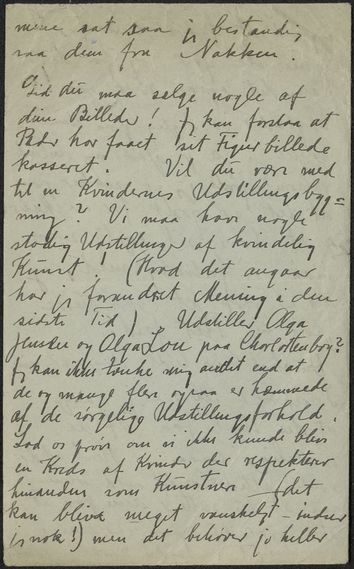 mine sat saa jeg bestandig
saa dem fra Nakken.
Gid du maa sælge nogle af
dine Billeder! Jeg kan forstaa at
Peder har faaet sit Figurbillede
kasseret. Vil du være med
til en Kvindernes Udstillingsbyg=
ning? Vi maa have nogle
stadig Udstillinger af kvindelig
Kunst! (Hvad det angaar
har jeg forandret Mening i den
sidste Tid) Udstiller Olga
Jensen og Olga Lau paa Charlottenborg?
Jeg kan ikke tænke mig andet end at
de og mange flere ogsaa er hæmmede
af de sørgelige Udstillingsforhold.
Lad os prøve om vi ikke kunde blive
en Kreds af Kvinder der respekterer
hinanden som Kunstnere (det
kan blive meget vanskeligt – indser
jeg nok!) men det behøver jo heller